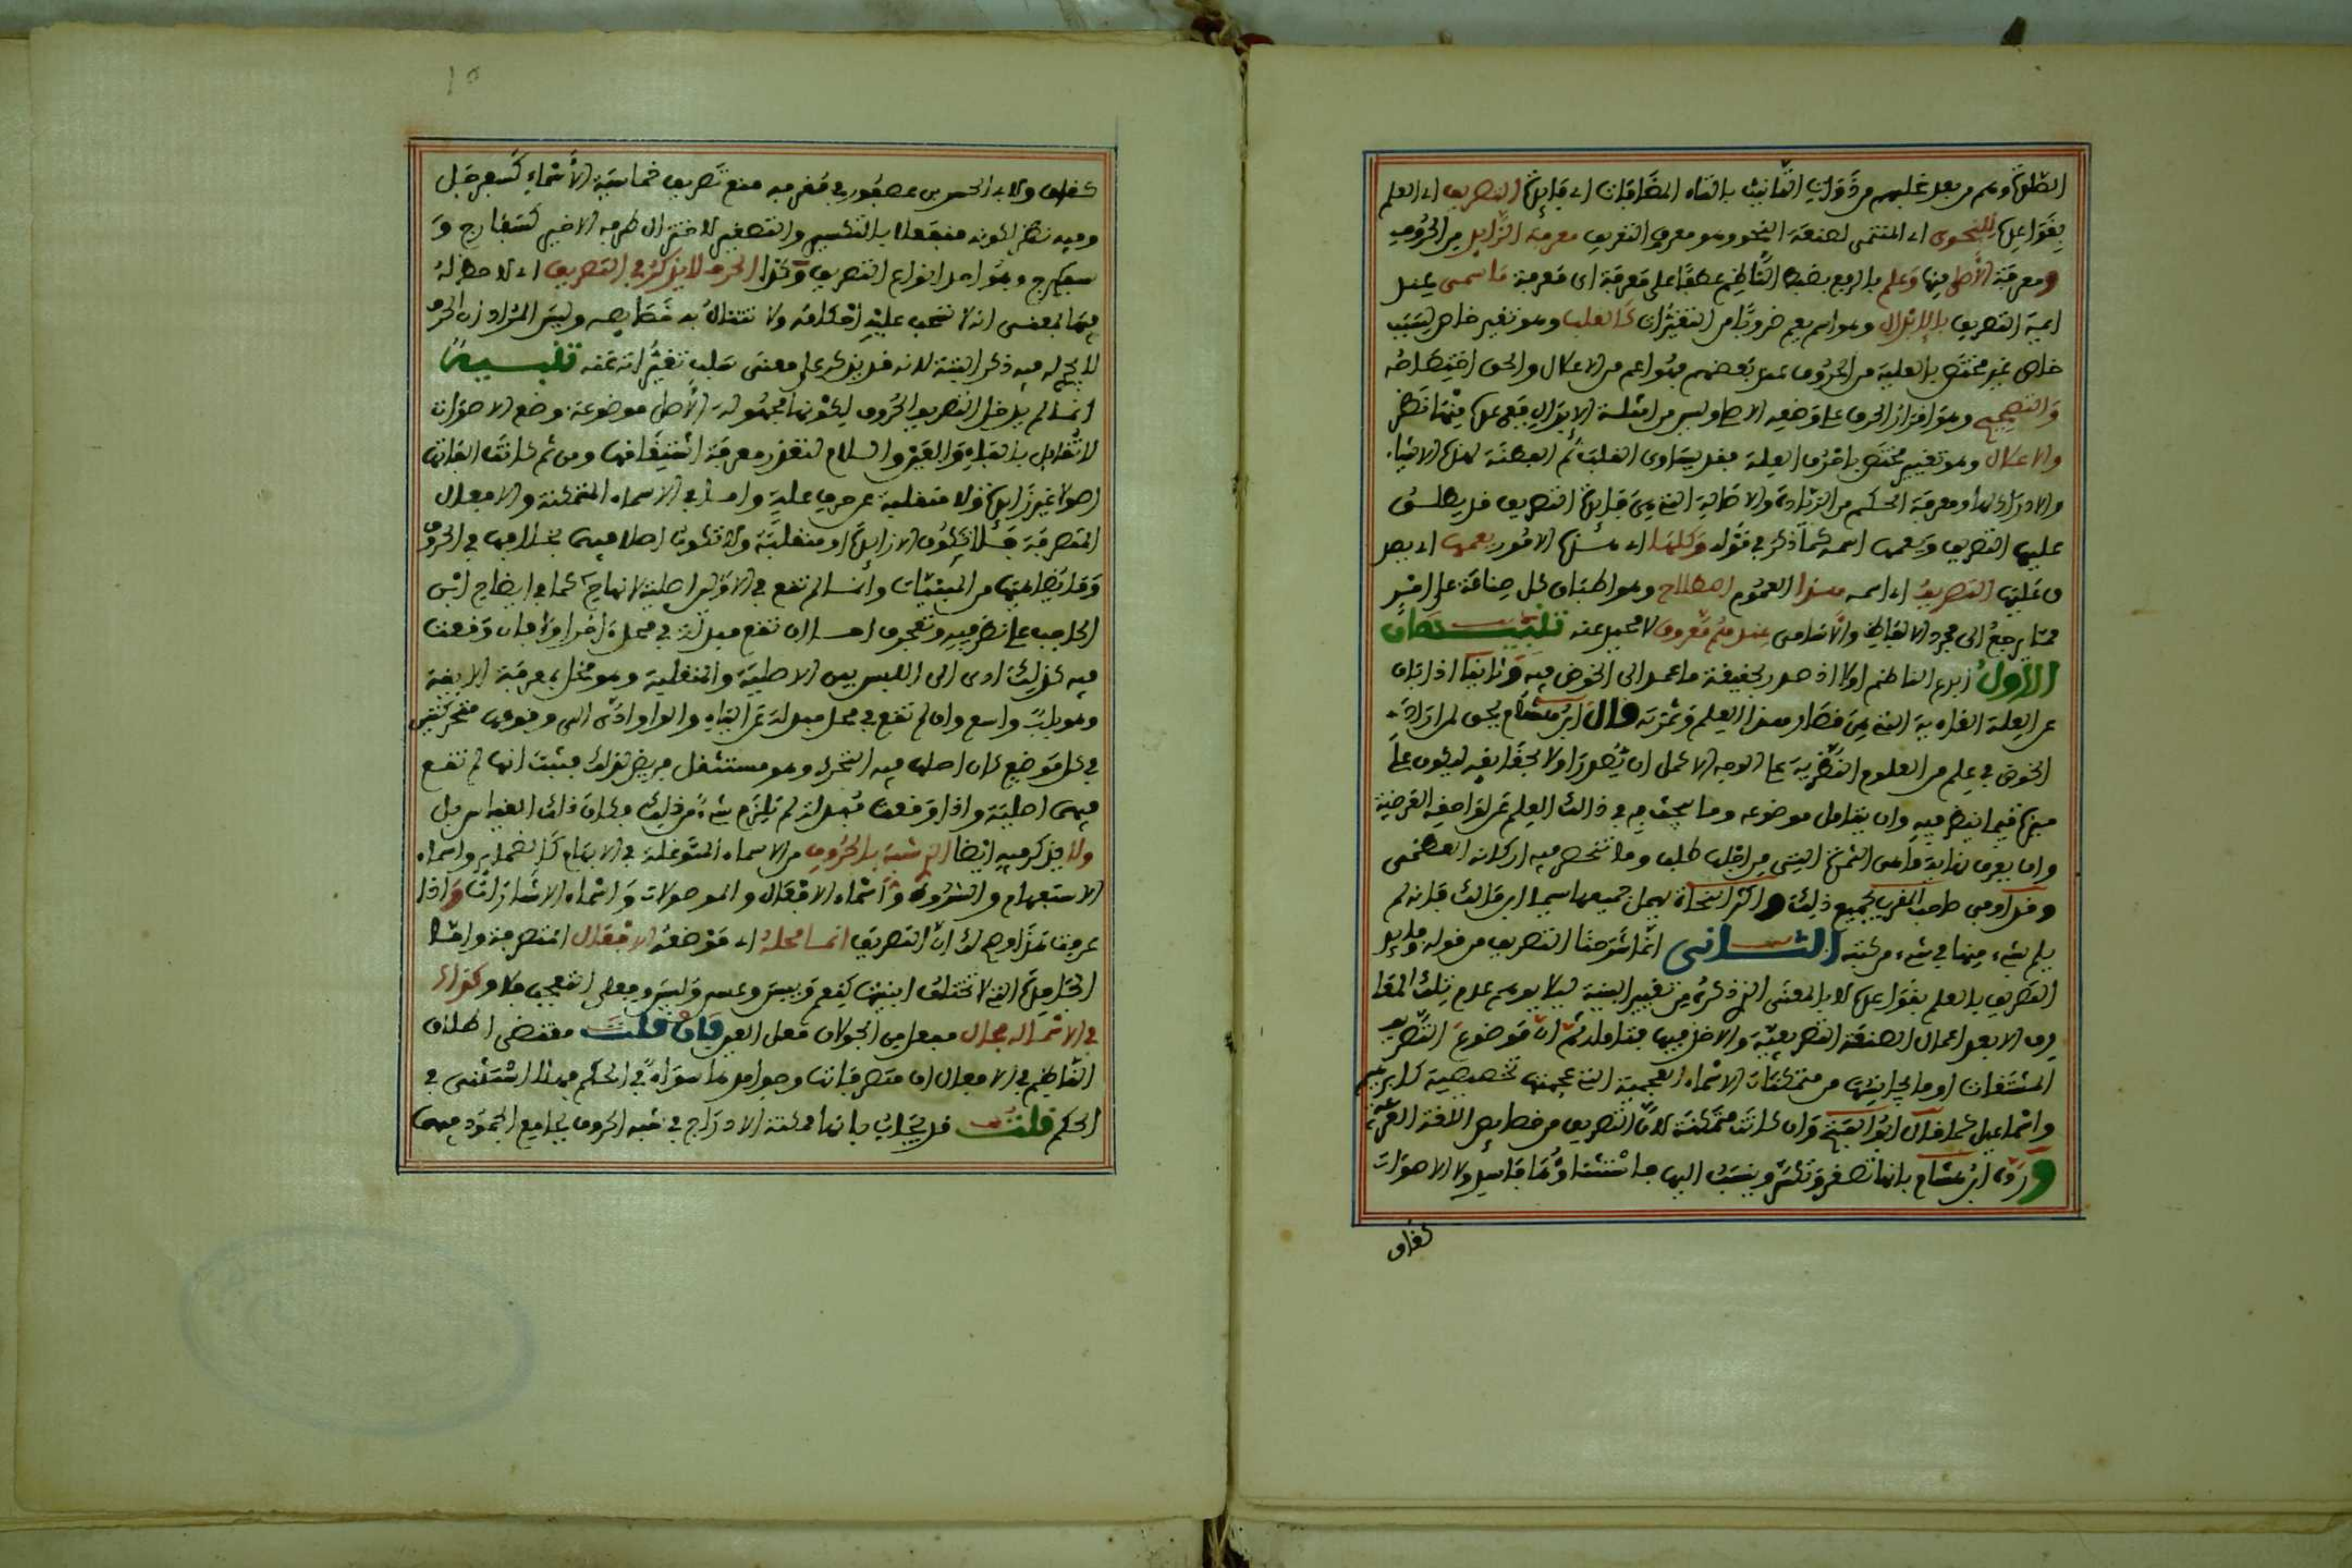 الطلبة ومم من بعد غلبهم من ذوات التأنيث بالتاء المضافات اى فايدة التصريف اى العلم
بقواعده للنحوى اى المنتمى لصنعة النحو وهو معرف التعريف معرفة الزايد من الحروف
ومعرفة الأصل منها وعلم بالرفع بضبط الناظم عطفا على معرفة اى معرفة ما سمى عند
ايمة التصريف بالابدال وهو اسم يعم ضروبا من التغيرات كالقلب وهو تغير خاص بسبب
خاص غير مختص بالعلة من الحروف عند بعضهم فهو اعم من الاعلال والحق اختصاصه
والتصحيح وهو اقرار الحرف على وضعه الاصل وليس من امثلة الابدال فبعده منها نظر
والاعلال وهو تغيير مختص باحرف العلة فقد يساوى القلب ثم الفطنة لهذه الاشياء
والادراك لها ومعرفة الحكم من الزيادة والاصالة التى هى فايدة التصريف قد يطلق
عليها التصريف ويعمها اسمه كما ذكر فى قوله وكلها اى هذه الامور يعمها اى يصد
ق عليها التصريف اى اسمه هذا العموم اصطلاح وهو اطباق كل صناعة على امر
مما يرجع الى مجرد الالفاظ والاسامى عندهم معروف لا مجيد عنه تنبيهان
الاول ابدى الناظم اولا اذ حد بحقيقة ما عمد الى الخوض فيه وثانيا اذ ابان
عن العلة الغاءية التى هى قصار هذا العلم وثمرته قال ابن هشام يحق لمن اراد
الخوض فى علم من العلوم النظرية على الوجه الاكمل ان يتصوره اولا بحقايقه ليكون على
بينة فيما ينظر فيه وان يتامل موضوعه وما يبحث به فى ذالك العلم عن لواحقه العرضية
وان يعرف بداية ما هى الثمرة التى من اجلها طلب وما تنحصر فيه اركانه العظمى
وقد اوفى صاحب المقرب بجميع ذلك واكثر النحاة يهمل جميعها سيما ابن مالك فانه لم
يلم بشيء منها فى شيء من كتبه الثانى انما شرحنا التصريف من قوله فايدة
التصريف بالعلم بقواعده لا بالمعنى الذى ذكره من تغيير البنية ليلا يوهم عدم تلك المعا
رف الا بعد اعمال الصنعة التصريفية والاخذ فيها فتامله ثم ان موضوع التصريف
المشتقات او ما يجانبها من متمكنات الاسماء العجمية التى عجمتها شخصية كابراهيم
واسماعيل كما قال ابو الفتح وان كانت متمكنة لان التصريف من خصايص اللغة العربية
ورده ابن هشام بانها تصغر وتكسر وينسب اليها فاستثناؤها فاسد ولا الاصوات
كغاق
كغاق ولابى الحسين بن عصفور فى مقربه منع تصريف خماسية الأسماء كسفرجل
وفيه نظر لكونه منفعلا بالتكسير والتصغير للاختزال طرفه الاخير كسفارج و
سفيرج وهو احد انواع التصريف وكذا الحرف لا يذكر فى التصريف اى لا حظ له
فيه المعنى انه لا تنحب عليه احكامه ولا تتناله به خصايصه وليس المراد ان الحرف
لا يجرى له فيه ذكر البتة لانه قد يذكر على معنى سلب تغيراته عنه تنبيه
انما لم يدخل التصريف الحروف لكونها مجهولة الأصل موضوعة وضع الاصوات
لا تقابل بالفاء والعين واللام لتعذر معرفة اشتقاقها ومن ثم كانت الفاتها
اصولا غير زايدة ولا منقلبة عن حرف علة واما فى الاسماء المتمكنة والافعال
المتصرفة فلا تكون الا زايدة او منقلبة ولا تكون اصلا فيهما بخلافها فى الحروف
وقد يضاهيها من المبنيات وانما لم تقع فى الاولين اصلية لانها كما فى ايضاح ابن
الحاجب على نظر فيه وتعجرف اما ان تقع مبدلة فى محل اخر او لا فان وقعت
فيه كذلك ادى الى اللبس بين الاصلية والمنقلبة وهو مخل بمعرفة الابنية
وهو باب واسع وان لم تقع فى محل مبدلة عن الياء والواو ادى الى وقوعها متحركتين
فى كل موضع كان اصلها فيه التحرك وهو مستثقل مرفوض لذلك فثبت انها لم تقع
فيهما اصلية واذا وقعت مبدلة لم يلزم شيء من ذلك وكان ذلك القياس قبل
ولا يذكر فيه ايضا الذى شبه بالحروف من الاسماء المتوغلة فى الابهام كالضماير واسماء
الاستفهام والشروط واسماء الافعال والموصولات واسماء الاشارات واذا
عرفت هذا وصح لك ان التصريف انما محله اى موضعه الافعال المتصرفة واما
الجامدة التى لا تختلف ابنيتها كنعم وبيس وعسى وليس وفعلى التعجب فلا وكذا
فى الاسماء له مجال مفعل من الجولان فعل العير فان قلت مقتضى اطلاق
الناظم فى الافعال ان متصرفاتها وجوامدها سواء فى الحكم فهلا استثنى فى
الحكم قلت قد يجاب بانها ممكنة الادراج فى شبه الحروف بجامع الجمود فيهما